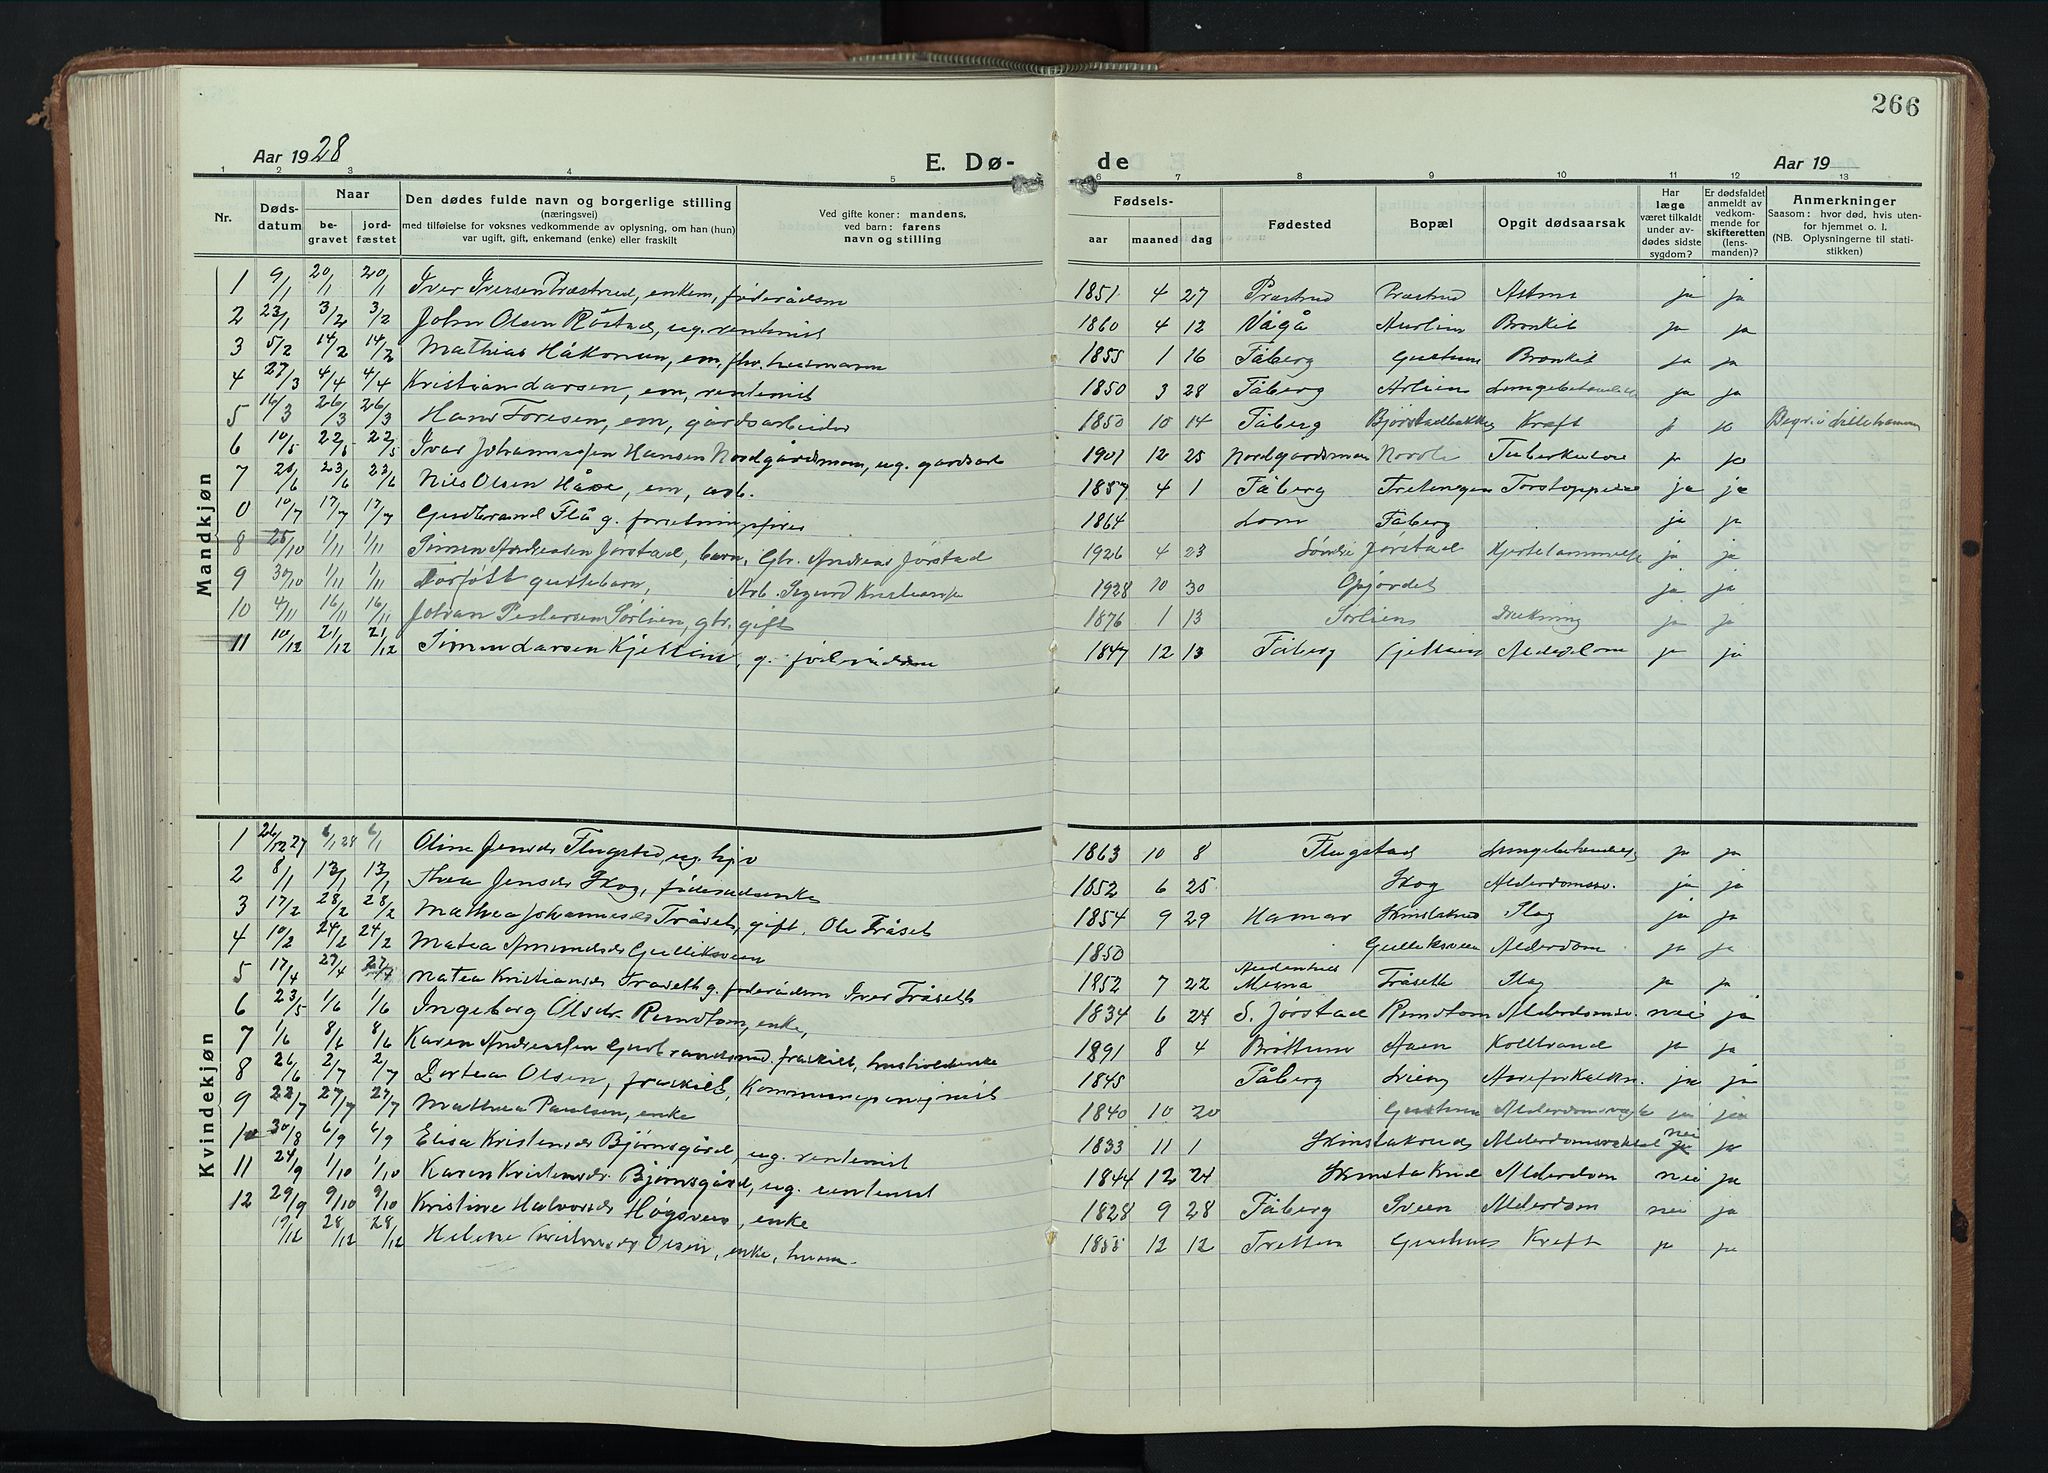 266
Aar 1928 E. Dø- de Aar 19
1 2 3 4 5 6 7 8 9 10 11 12 13
Nr. Dødsdatum Naar begravet jordfæstet Den dødes fulde navn og borgerlige stilling (næringsvei) med tilføielse for voksnes vedkommende av oplysning, om han (hun) var ugift, gift, enkemand (enke) eller fraskilt Ved gifte koner: mandens, ved barn: farens navn og stilling Fødsels- aar maaned dag Fødested Bopæl Opgit dødsaarsak Har læge været tilkaldt under avdødes sidste sygdom? Er dødsfaldet anmeldt av vedkommende for skifteretten (lensmanden)? Anmerkninger Saasom: hvor død, hvis utenfor hjemmet o. l. (NB. Oplysningerne til statistikken)
Mandkjøn
1 9/1 20/1 20/1 Iver Iversen Præstrud, enkem, føderådsm 1851 4 27 Præstrud Præstrud Astma ja ja
2 23/1 3/2 3/2 John Olsen Röstad, ug. rentenist 1860 4 12 Vågå Aurlien Bronkit ja ja
3 5/2 14/2 14/2 Mathias Håkonsen, em, fhv. husmann 1855 1 16 Fåberg Bronkit ja ja
4 27/3 4/4 4/4 Kristian Larsen, em, rentenist 1850 3 28 Fåberg Lungebetændelse ja ja
5 16/3 26/3 26/3 Hans Toresen, em, gårdsarbeider 1850 10 14 Fåberg Bjørstadbakken Kræft ja Begr. i Lillehammer
6 10/5 22/5 22/5 Ivar Johannessen Hansen Nordgårdsmoen, ug. gardsarb 1901 12 25 Nordgardsmoen Tuberkulose ja ja
7 20/6 23/6 23/6 Nils Olsen Håve, em, arb. 1857 4 1 Fåberg ja ja
0 10/7 17/7 17/7 Gudbrand Flå g. forretningsfører 1864 Lom Fåberg ja ja
8 25/10 1/11 1/11 Simen Andreassen Jørstad, barn, Gbr. Andreas Jørstad 1926 4 23 Søndre Jørstad ja ja
9 30/10 1/11 1/11 Dødfött guttebarn, Arb. Sigurd Kristiansen 1928 10 30 Opjordet ja ja
10 4/11 16/11 16/11 Johan Pedersen Sørlien, gbr. gift 1876 1 13 Sørlien Drukning ja ja
11 10/12 21/12 21/12 Simen Larsen Kjellien, g. föderådsm 1847 12 13 Fåberg Kjellien Alderdom ja ja
Kvindekjøn
1 26/12 27 6/1 28 6/1 Oline Jensdr Flugstad, ug. 1863 10 8 Flugstad Lungebetændelse ja ja
2 8/1 13/1 13/1 Thea Jensdr Skog, föderådsenke 1852 6 25 Skog Alderdomssv. ja ja
3 17/2 28/2 28/2 Mathea Johannesdr Fråset, gift. Ole Fråset 1854 9 29 Hamar Skinstakrud Slag ja ja
4 10/2 24/2 24/2 Matea Amundsdr Gulliksveen 1850 Gulliksveen Alderdom ja ja
5 17/4 27/4 27/4 Matea Kristiansdr Fråseth g. föderådsm Iver Fråseth 1852 7 22 Mesna Fråseth Slag ja ja
6 23/5 1/6 1/6 Ingeborg Olsdr. Rundtom, enke, 1834 6 24 S. Jørstad Rundtom Alderdomssv. nei ja
7 1/6 8/6 8/6 Karen Andreassen Gudbrandsrud fraskilt, husholderske 1891 8 4 Brøttum Aaen Koldbrand ja ja
8 26/6 2/7 2/7 Dortea Olsen, fraskilt, Kommunepensjonist 1845 Fåberg Lieng Aareforkalkn. ja ja
9 22/7 27/7 27/7 Mathea Paulsen, enke 1840 10 20 Alderdomssvagh. ja
10 30/8 6/9 6/9 Elisa Kristensdr Bjørnsgård, ug. rentenist 1833 11 1 Skinstakrud Alderdomssvakhet nei ja
11 24/9 1/10 1/10 Karen Kristensdr. Bjørnsgård, ug. rentenist 1844 12 24 Skinstakrud Alderdom nei ja
12 29/9 9/10 9/10 Kristine Halvorsdr Høgsveen, enke 1828 9 28 Fåberg Sveen Alderdom nei ja
19/12 28/12 28/12 Helene Olsen, enke, husm. 1855 12 12 Tretten Kreft ja ja